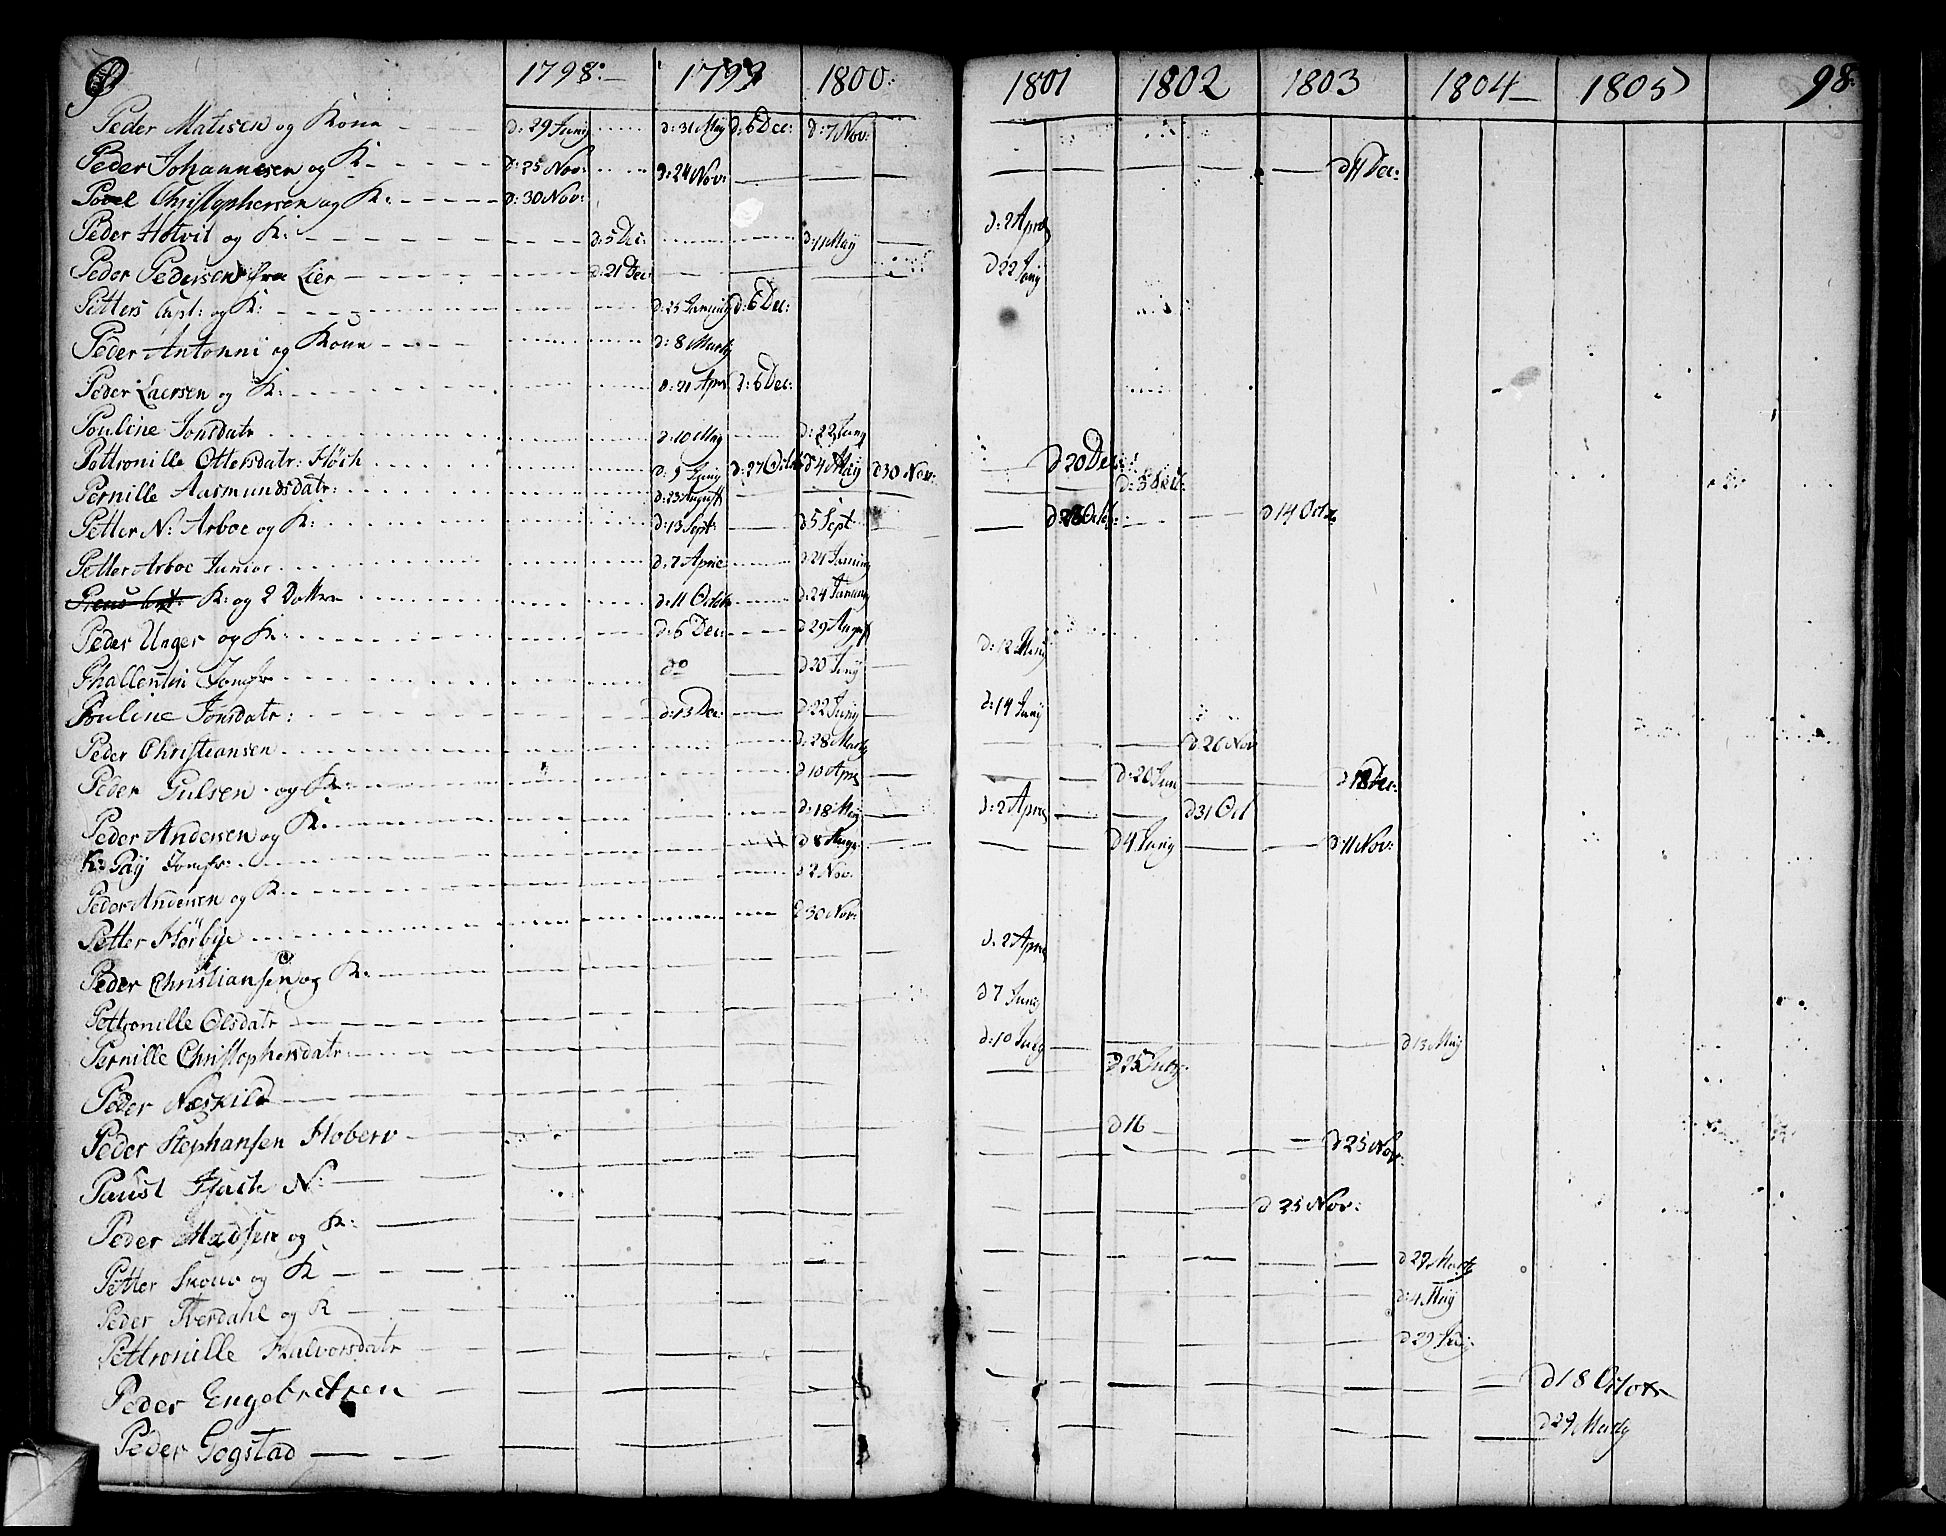 P 1798. 1799 1800. 1801 1802 1803 1804 1805 98.
Peder Matisen og Kone d: 29 Junij d: 31 Maij d: 6 Dec: d: 7 Nov:
Peder Johannesen og K d: 25 Nov: d: 24 Nov: d 11 Dec:
Povel Christophersen og K: d: 30 Nov:
Peder Hotvit og K: d: 5 Dec: d: 11 Maij d: 2 Apr
Peder Pedersen fra Lier d: 21 Dec: d 22 Junij
Petters og K: d: 25 d: 6 Dec:
Peder Antonni og Kone d: 8 Marty
Peder Laersen og K: d: 21 Apr d: 6 Dec:
Pouline Jonsdatr d: 10 Maij d: 22 Junij
Pettronille Ottersdatr: Höeh d: 9 Junij d: 27 Octb d 4 Maij d 30 Nov: d 20 Dec:
Pernille Aasmundsdatr: d: 23 August
Petter N: Arboe og K: d: 13 Sept: d 5 Sept d: 28 Octb: d 14 Octb
Petter Arboe Junior d: 7 April d: 24
K: og 2 Dottre d: 11 Octb d: 24
Peder Unger og K: d: 6 Dec: d: 29 August d: 12 Maij
Thallentin Jomfr do d 20 Junij
Pouline Jonsdatr: d: 13 Dec: d: 22 Junij d: 14 Junij
Peder Christiansen d: 28 Marty d 26 Nov
Peder Gulsen og K: d 10 Apr d: 20 Jun d 18 Dec:
Peder Andersen og K. d: 18 Maij d: 2 Apr d 31 Oct
K: Paÿ Jomfr: d 8 Augs d 4 Junij d 11 Nov:
Peder Andersen og K: d 2 Nov.
Petter Hörbije 30 Nov:
Peder Christiansen og K: d: 2 Apr
Pettronille Olsdatr d 7 Junij
Pernille Christophersdatr: d: 10 Junij d 13 Maij
Peder Næskild d 25 July
Peder Stephansen Hoberv d 16 d 25 Nov:
Paust N:
Peder Madsen og K: d 25 Nov:
Petter og K d 27 Marty
Peder Sverdahl og K d: 4 Maij
Pettronille Halvorsdatr d 29
Peder Engebretsen d 18 Octobr
Peder Gogstad d 29 Marty